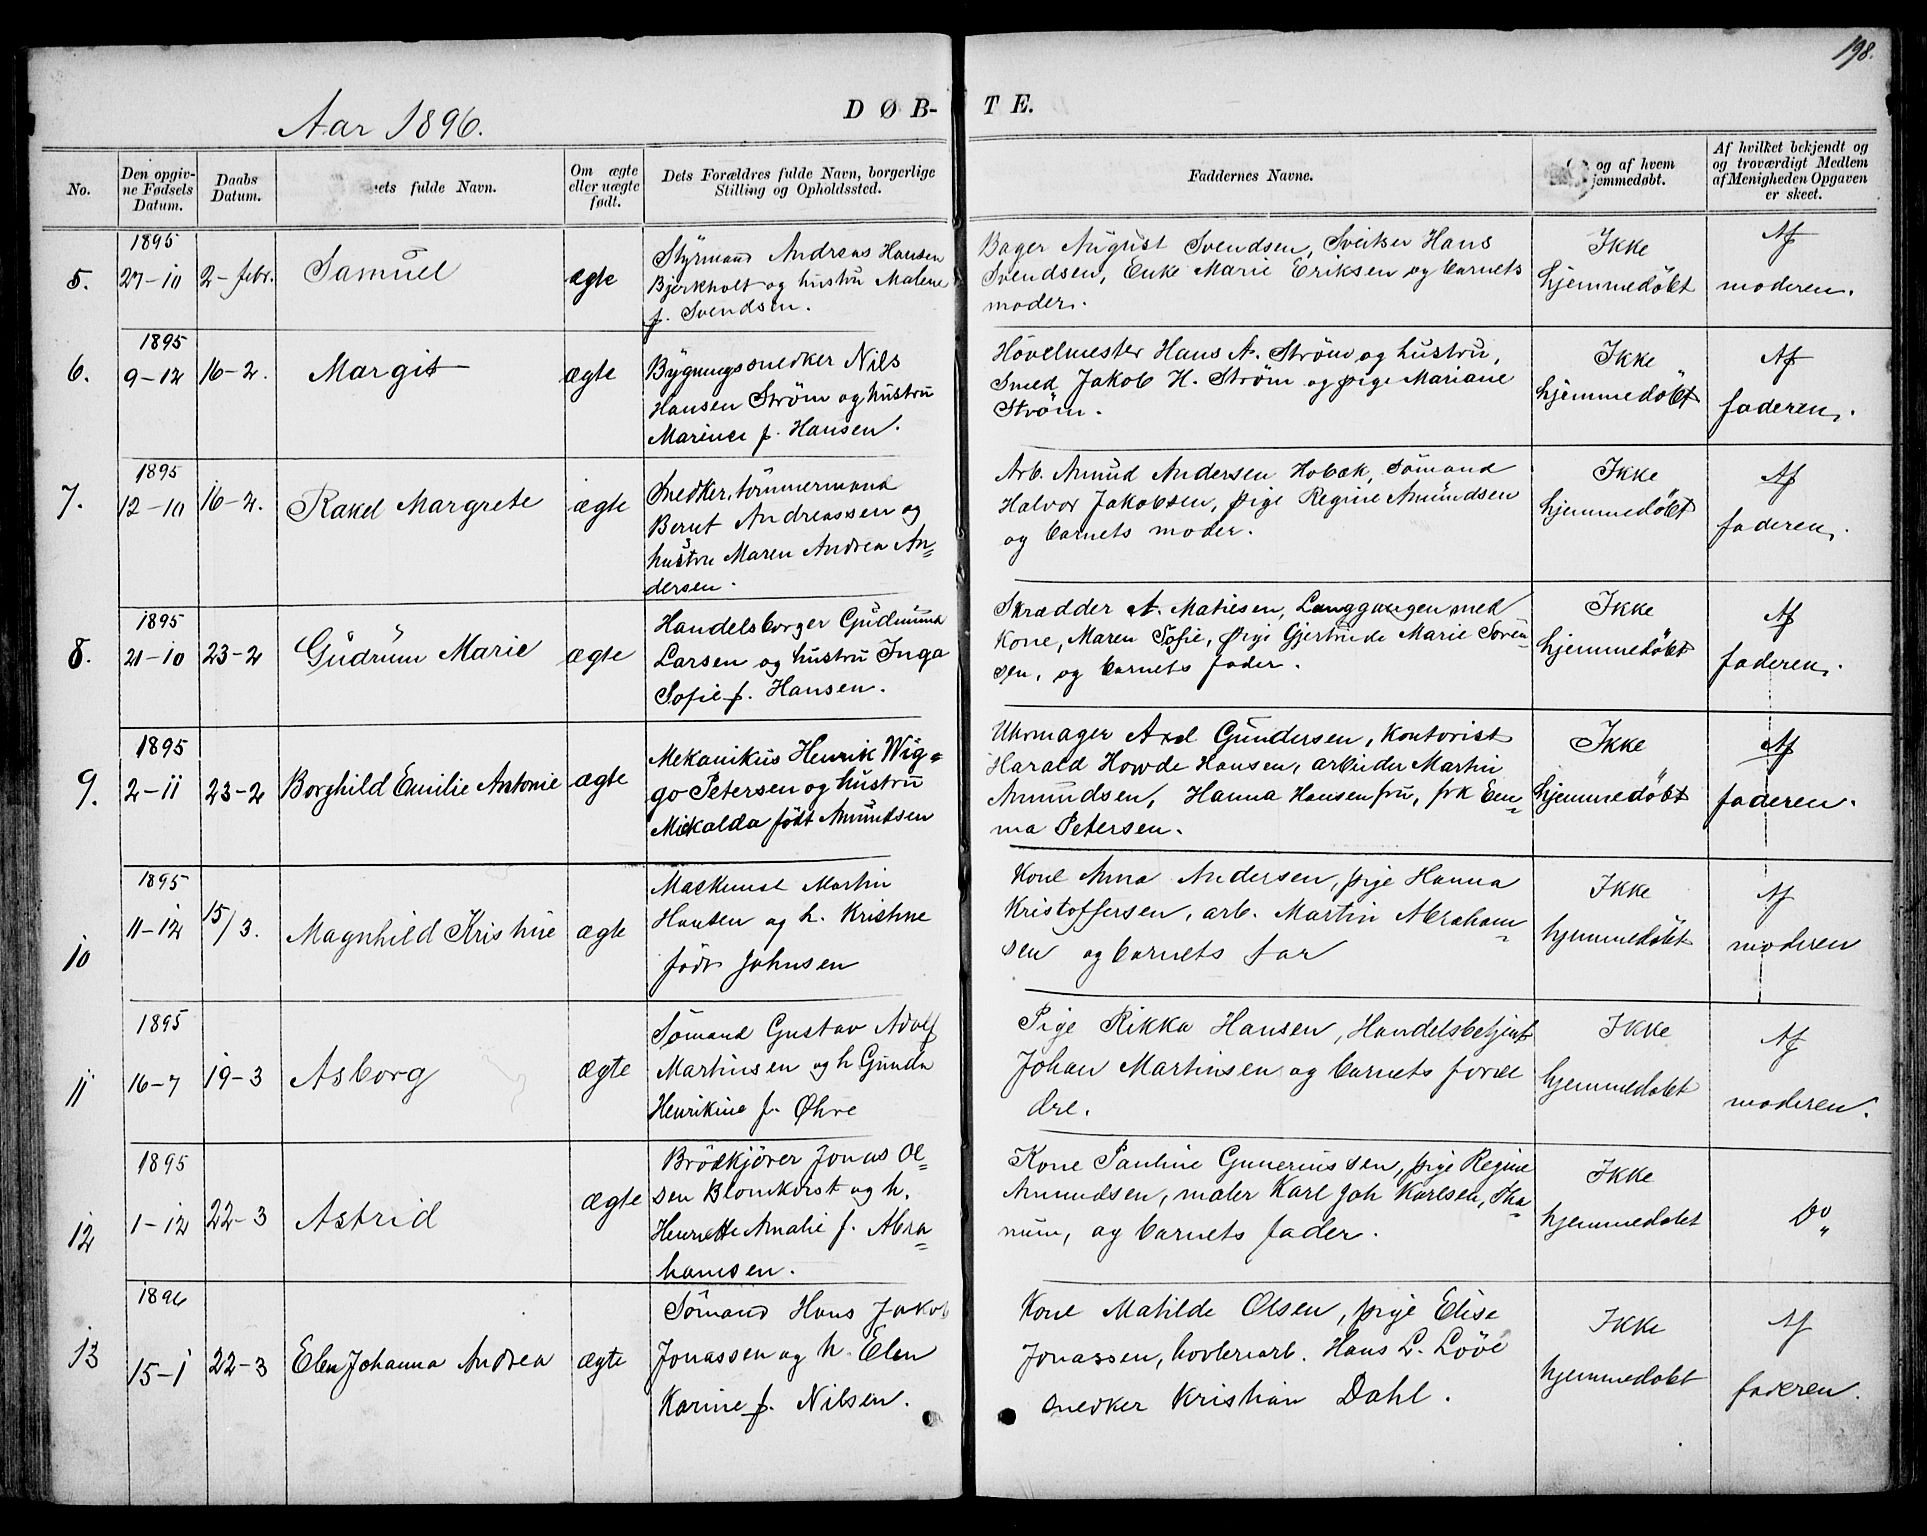 198.
Aar 1896.
DØB-TE.
No.
Den opgiv-
ne Fødsels
Datum.
Daabs
Datum.
ets fulde Navn.
Om ægte
eller uægte
født.
Dets Forældres fulde Navn, borgerlige
Stilling og Opholdssted.
Faddernes Navne.
og af hvem
jemmedøbt.
Af hvilket bekjendt og
og troværdigt Medlem
af Menigheden Opgaven
er skeet.
5.
1895
27-10
2-febr.
Samuel
ægte
Styrmand Andreas Hansen
Bjerkholt og hustru Malene
f. Svendsen.
Bager August Svendsen, Sveitser Hans
Svendsen, Enke Marie Eriksen og barnets
moder.
Ikke
hjemmedøbt
Af
moderen.
6.
1895
9-12
16-2.
Margit
ægte
Bygningssnedker Nils
Hansen Strøm og hustru
Marince f. Hansen.
Høvelmester Hans A. Strøm og hustru,
Smed Jakob H. Strøm og pige Mariane
Strøm.
Ikke
hjemmedøbt
Af
faderen.
7.
1895
12-10
16-2.
Rakel Margrete
ægte
Snedker, tømmermand
Bernt Andreassen og
hustru Maren Andrea An=
dersen.
Arb. Amund Andersen Hobæk, Sømand
Halvor Jakobsen, pige Regine Amundsen
og barnets moder.
Ikke
hjemmedøbt
Af
faderen.
8.
1895
21-10
23-2
Gudrun Marie
ægte
Handelsborger Gudmund
Larsen og hustru Inga
Sofie f. Hansen.
Skrædder A. Matiesen, Langgangen med
Kone, Maren Sofie, Pige Gjertrude Marie Søren-
sen, og barnets fader.
Ikke
hjemmedøbt
Af
faderen.
9.
1895
2-11
23-2
Borghild Emilie Antonie
ægte
Mekanikus Henrik Wig=
go Petersen og hustru
Mikalda født Amundsen
Uhrmager Axel Gundersen, Kontorist
Harald Howde Hansen, arbeider Martin
Amundsen, Hanna Hansen fru, frk Em=
ma Petersen.
Ikke
hjemmedøbt
Af
faderen.
10
1895
11-12
15/3.
Magnhild Kristine
ægte
Maskinist Martin
Hansen og h. Kristine
født Johnsen
Kone Anna Andersen, pige Hanna
Kristoffersen, arb. Martin Abraham=
sen og barnets far
Ikke
hjemmedøbt
Af
moderen
11
1895
16-7
19-3
Asborg
ægte
Sømand Gustav Adolf
Martinsen og h Gunda
Henrikine f. Øhre
Pige Rikka Hansen, Handelsbetjent
Johan Martinsen og barnets foræl
dre.
Ikke
hjemmedøbt
Af
moderen.
12
1895
1-12
22-3
Astrid
ægte
Brødkjører Jonas Ol=
sen Blomkvist og h.
Henriette Amalie f. Abra=
hamsen.
Kone Pauline Gunerius sen, pige Regine
Amundsen, maler Karl Joh Karlsen, Tha=
num, og barnets fader.
Ikke
hjemmedøbt
Do
13
1896
15-1
22-3
Elen Johanna Andrea
ægte
Sømand Hans Jakob
Jonassen og h. Elen
Karine f. Nilsen.
Kone Matilde Olsen, pige Elise
Jonassen, hovleriarb. Hans L. Løve
snedker Kristian Dahl.
Ikke
hjemmedøbt
Af
faderen.